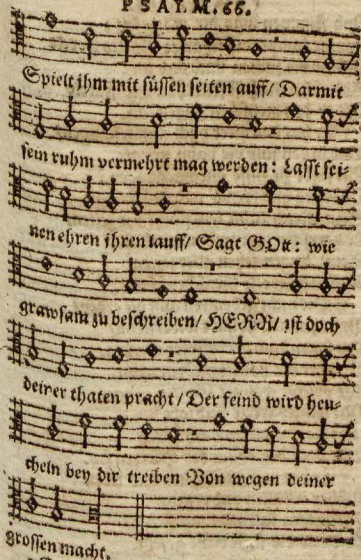 PSALM. 66.
Spielt jhm mit süssen seiten auff/ Darmit
sein ruhm vermehrt mag werden: Lasst sei-
nen ehren ihren lauff/ Sagt GOtt: wie
grawsam zu beschreiben/ HERR/ ist doch
deiner thaten pracht/ Der feind wird heu-
cheln bey dir treiben Von wegen deiner
grossen macht.